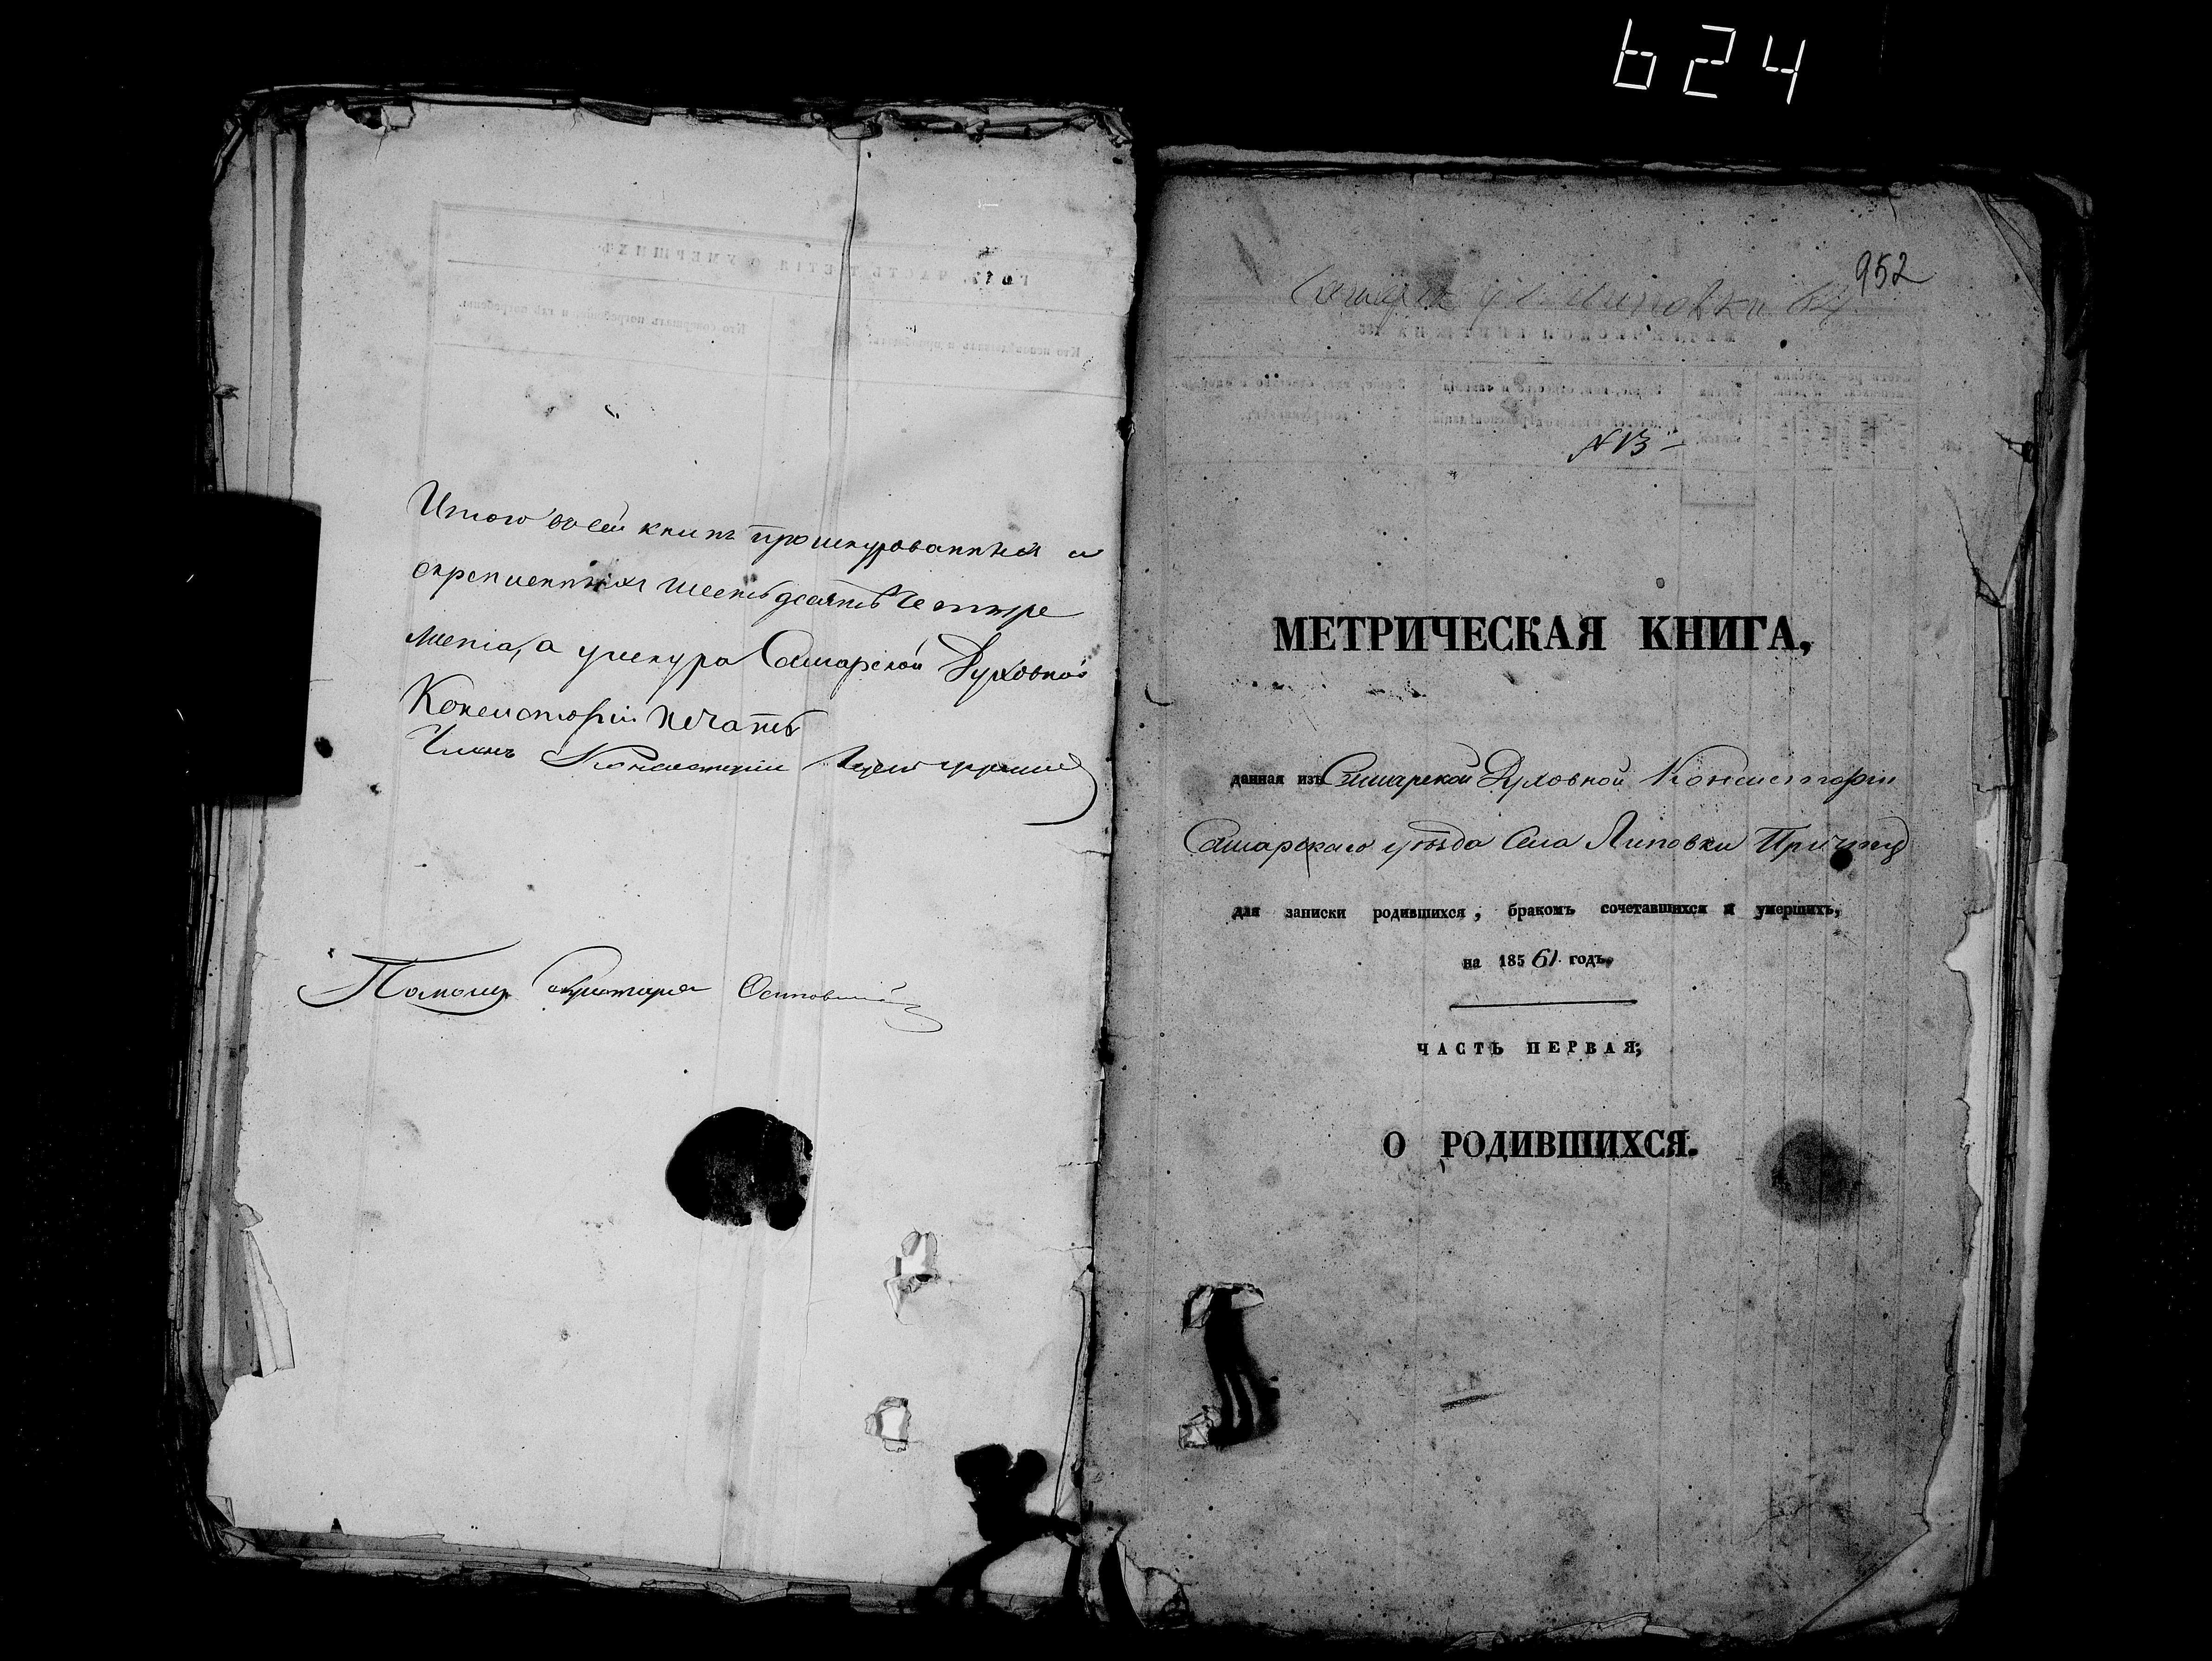 624
Итого въ сей книгѣ прошнурованныхъ и
скрепленныхъ шестьдесятъ четыре
листа, а у шнура Самарской Духовной
Консисторіи печать
Членъ Консисторіи
Помощ. Секретаря Осиповскій
952
Самар. у. с. Липовки 64
№ 13
МЕТРИЧЕСКАЯ КНИГА,
данная изъ Самарской Духовной Консисторіи
Самарскаго уѣзда Села Липовки Причту
для записки родившихся, бракомъ сочетавшихся и умершихъ,
на 185 61 годъ.
ЧАСТЬ ПЕРВАЯ,
О РОДИВШИХСЯ.